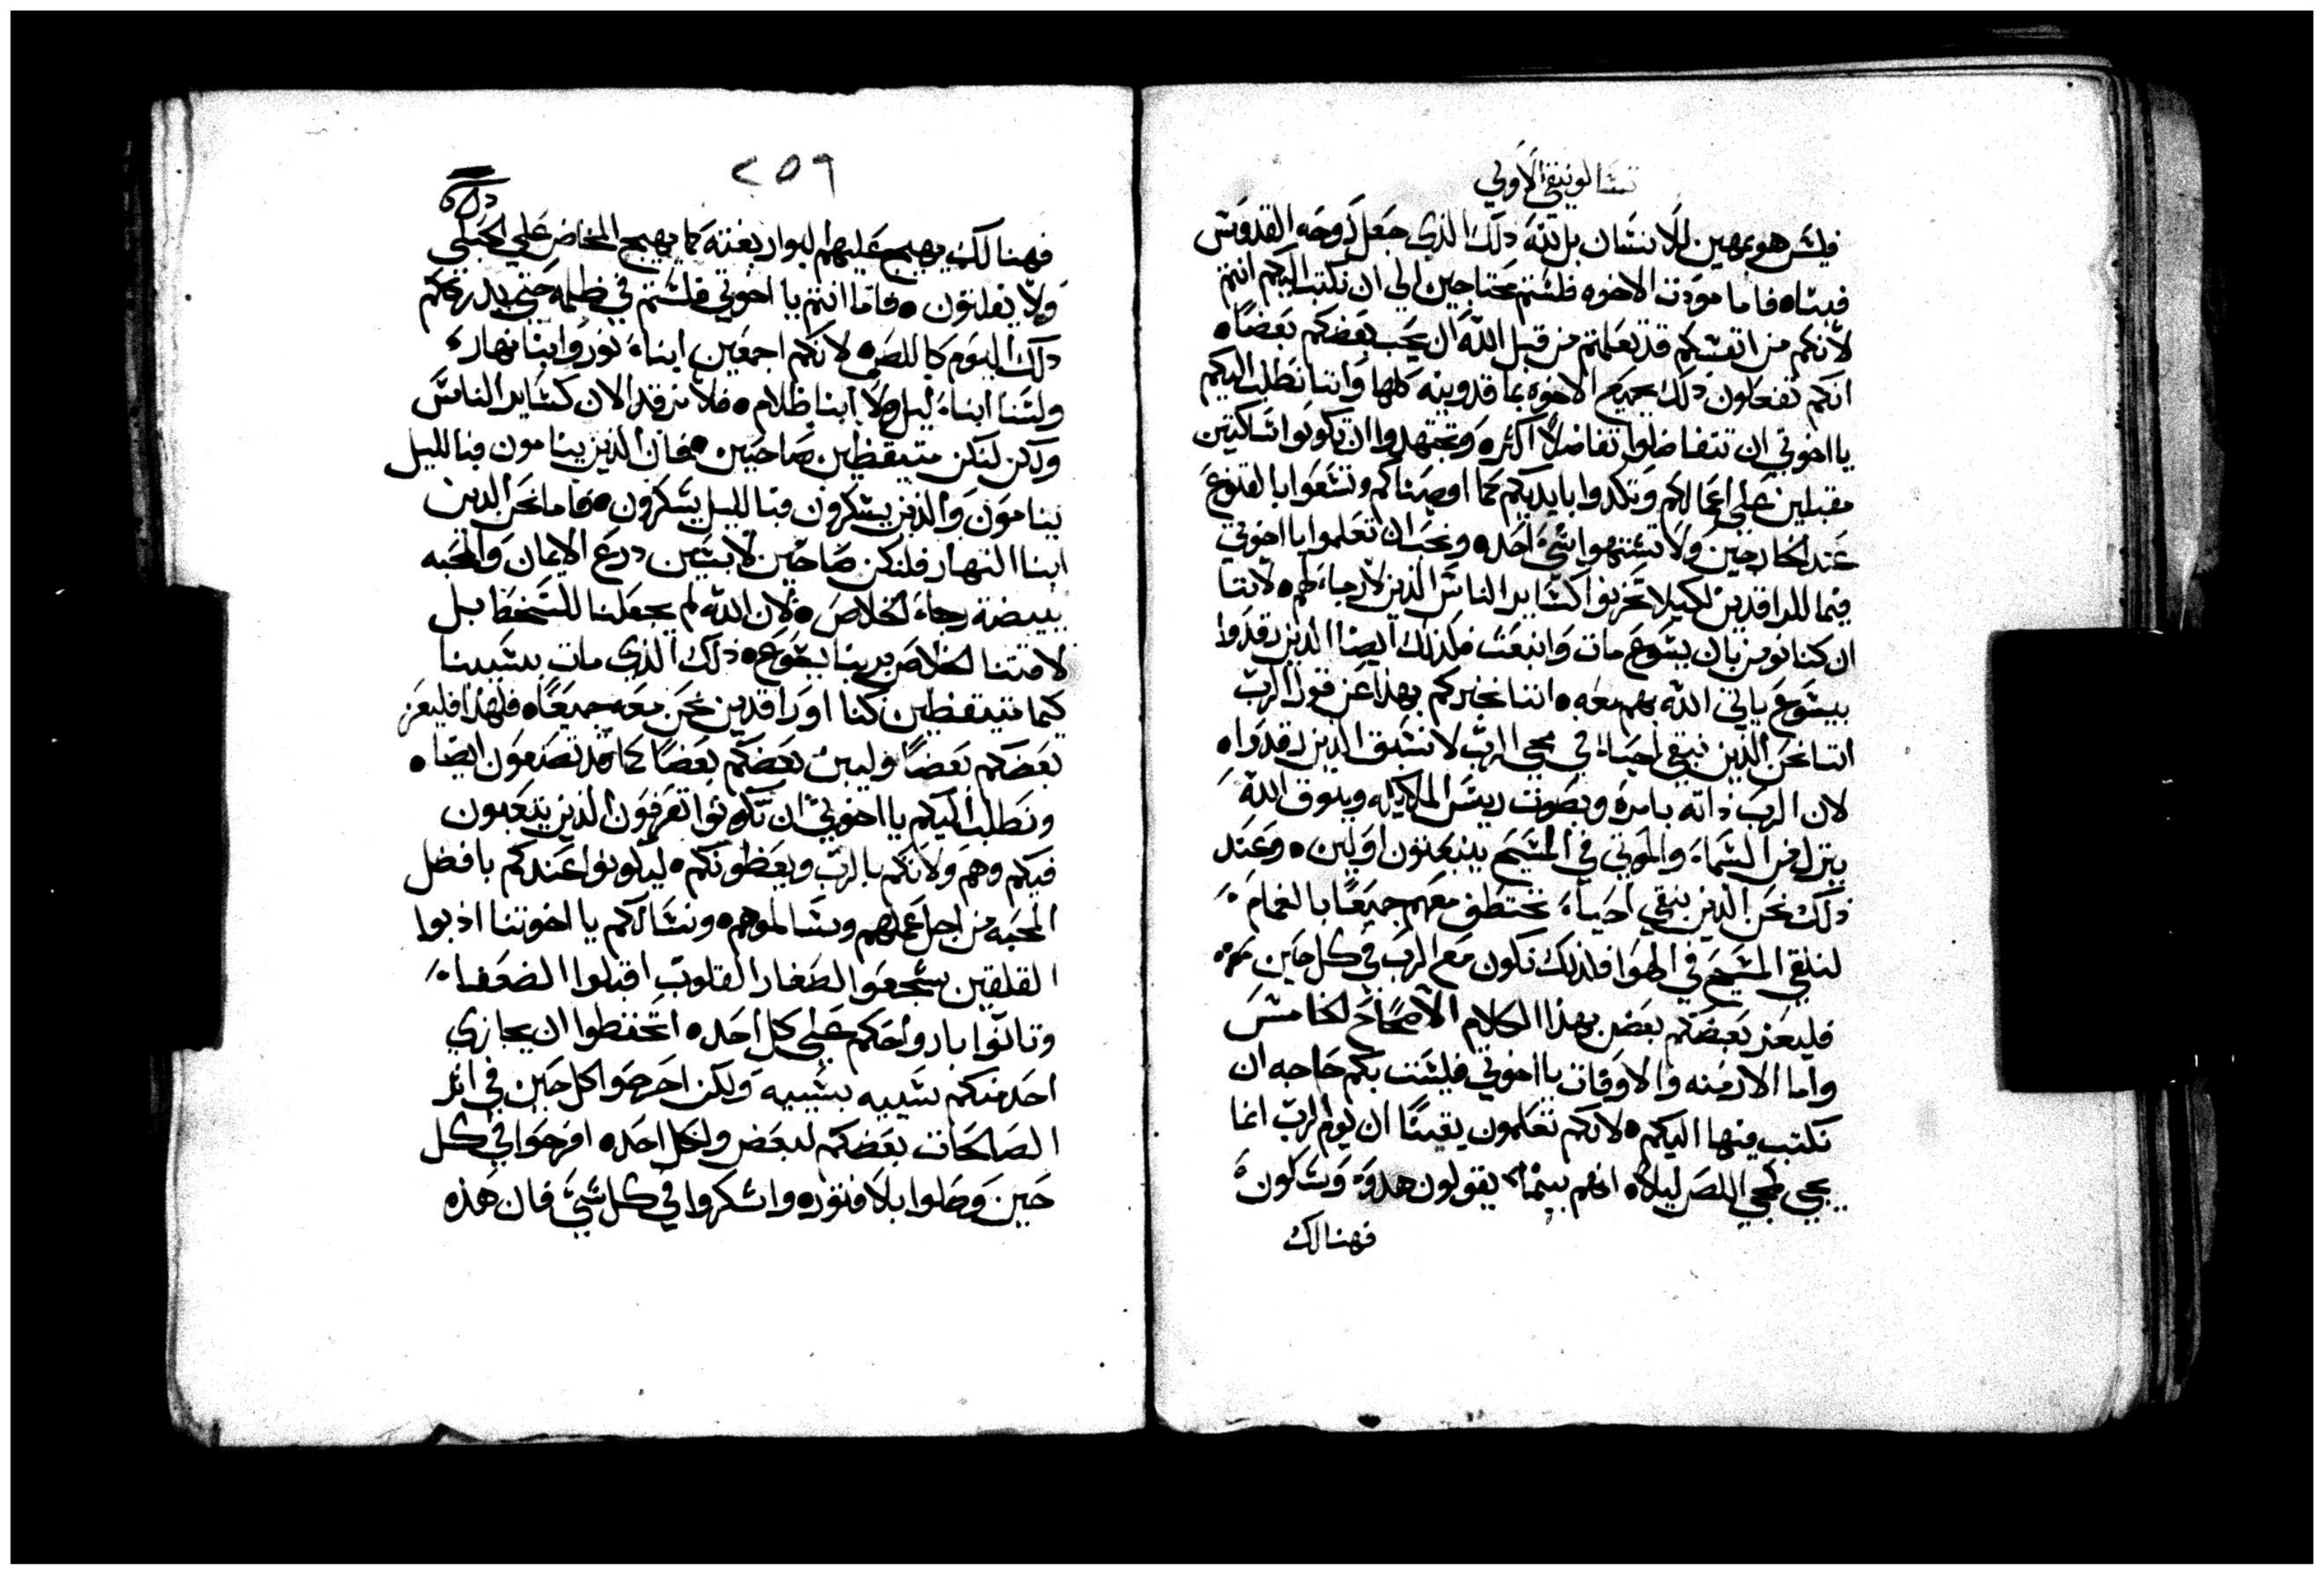 تسالونيقي الاولي
فليس هو بمهين للانسان بل لله ذلك الذي جعل روحه القدوس
فيناه فاما مودت الاخوه فلستم محتاجين الي ان نكتب اليكم انتم
لانكم من انفسكم قد تعلمتم من قبل الله ان يحب بعضكم بعضاه
انكم تفعلون ذلك بجميع الاخوه بماقدونيه كلها واننا نطلب اليكم
يا اخوتي ان تتفاضلوا تفاضلا اكثره وتجتهدوا ان تكونوا ساكتين
مقبلين علي اعمالكم وتكدوا بايديكم كما اوصيناكم وتسعوا بالقنوع
عند الخارجين ولا تشتهوا شي احده ونحب ان تعلموا يا اخوتي
فيما للراقدين لكيلا تحزنوا كساير الناس الذين لا رجاء لهم ه لاننا
ان كنا نومن بان يسوع مات وانبعث فكذلك ايضا الذين رقدوا
بيسوع ياتي الله بهم معه ه اننا نخبركم بهذا عن قول الرب
اننا نحن الذين نبقي احياء في مجي الرب لا نسبق الذين رقدوا ه
لان الرب ذاته بامره وبصوت ريس الملايكه وببوق الله
ينزل من السماء والموتي في المسيح ينبعثون اولين ه وعند
ذلك نحن الذين نبقي احياء نختطف معهم جميعا بالغمام
لنلقي المسيح في الهوا فلذلك نكون مع الرب في كل حين
فليعز بعضكم بعض بهذا الكلام الاصحاح الخامس
واما الازمنه والاوقات يا اخوتي فليست بكم حاجه ان
نكتب فيها اليكم ه لانكم تعلمون يقينا ان يوم الرب انما
يجي كمجي اللص ليلا ه انهم بينما يقولون هدوة وسكون
فهنالك
٢٥٩
فهنالك يهيج عليهم البوار بغتة كما يهيج المخاض علي الحبلي
ولا يفلتون ه فاما انتم يا اخوتي فلستم في ظلمه حتي يدرككم
ذلك اليوم كاللص ه لانكم اجمعين ابناء نور وابنا نهار
ولسنا ابناء ليل ولا ابنا ظلام ه فلا نرقد الان كساير الناس
ولكن لنكن متيقظين صاحيين ه فان الذين ينامون فبالليل
ينامون والذين يسكرون فبالليل يسكرون ه فاما نحن الذين
ابنا النهار فلنكن صاحين لابسين درع الايمان والمحبه
ببيضة رجاء الخلاص ه لان الله لم يجعلنا للسخط بل
لاقتنا الخلاص بربنا يسوع ه ذلك الذي مات بسببنا
كيما متيقظين كنا او راقدين نحن معه جميعا ه فلهذا فليعز
بعضكم بعضا وليبن بعضكم بعضا كما قد تصنعون ايضا ه
ونطلب اليكم يا اخوتي ان تكونوا تعرفون الذين يتعبون
فيكم وهم ولاتكم بالرب ويعظونكم ه ليكونوا عندكم بافضل
المحبه من اجل عملهم وسالموهم ه ونسالكم يا اخوتنا ادبوا
القلقين شجعوا الصغار القلوب اقبلوا الضعفاء
وتانوا بارواحكم علي كل احده اتحفظوا ان يجازي
احد منكم سيية بسيية ولكن احرصوا كل حين في اثر
الصالحات بعضكم لبعض ولكل احده افرحوا في كل
حين وصلوا بلا فتوره واشكروا في كل شي فان هذه